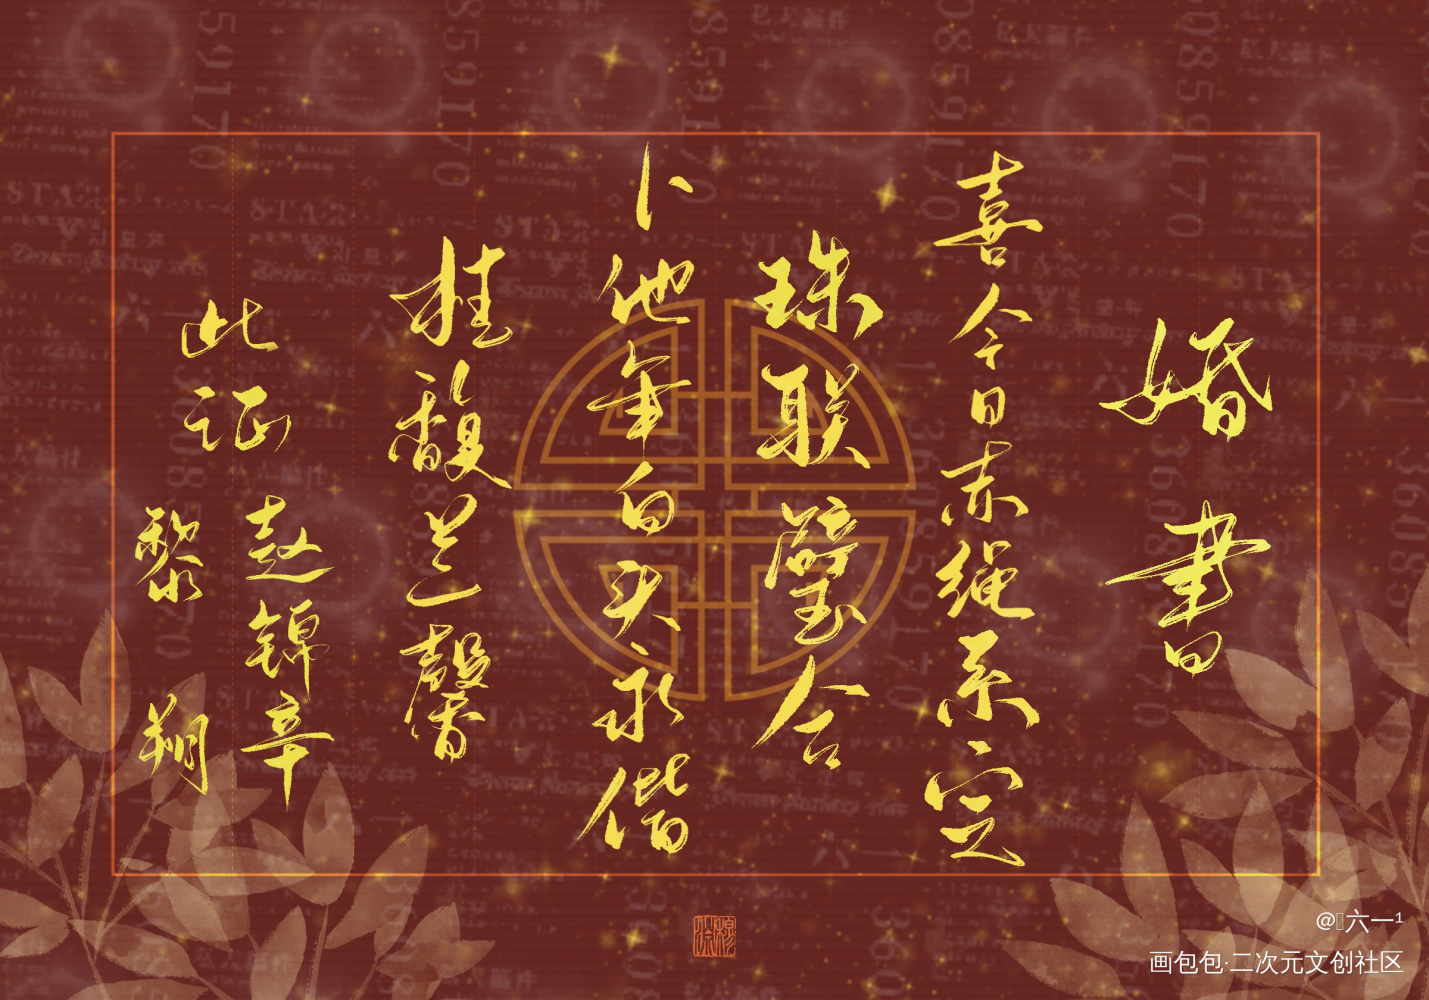 婚书
喜今日赤绳系定
珠联璧合
卜他年白头永偕
桂馥兰馨
此证
赵锦辛
黎朔
六一¹
画包包·二次元文创社区